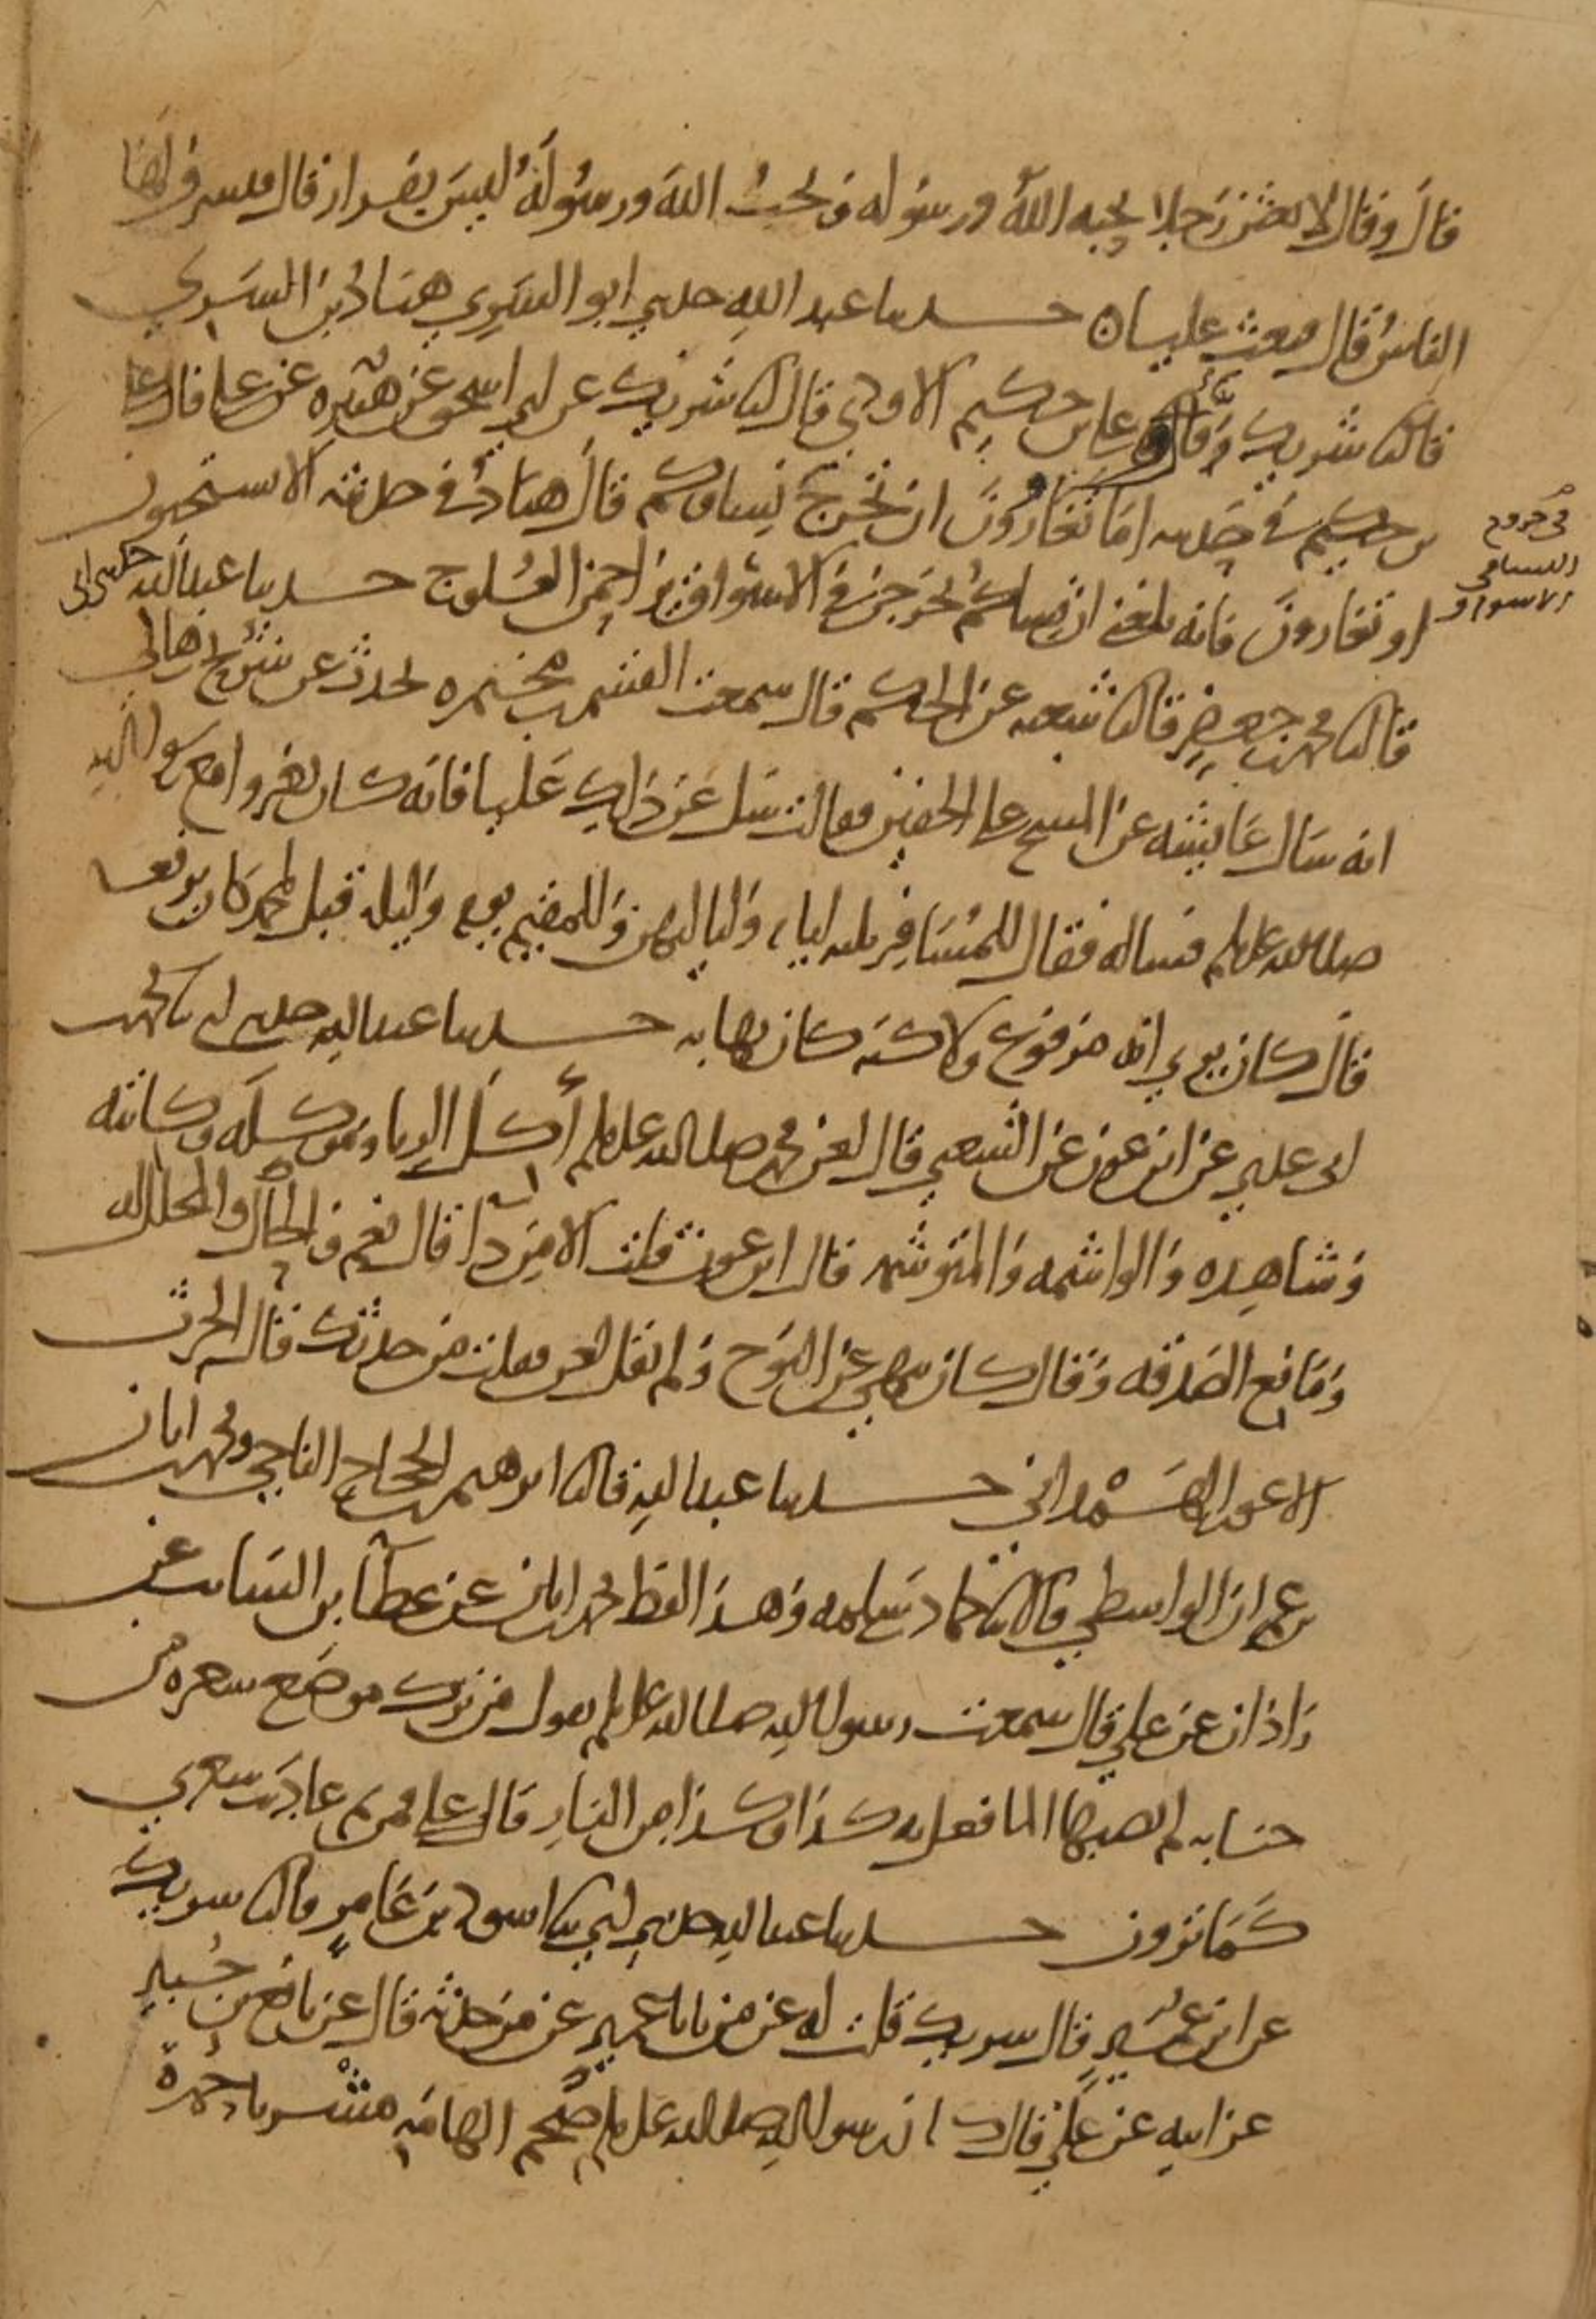 قال وقال لابعثن رجلا يحبه الله ورسوله ويحب الله ورسوله ليس بفرار قال فتشرف لها
الناس قال فبعث عليا حدثنا عبد الله حدثني ابو السري هناد بن السري
قال ثنا شريك وثنا علي بن حكيم الاودي قال ثنا شريك عن ابي اسحق عن هبيرة عن علي قال علي
بن حكيم في حديثه اما تغارون ان تخرج نساوكم قال هناد في حديثه الا تستحيون
او تغارون فانه بلغني ان نساكم يخرجن في الاسواق يزاحمن العلوج حدثنا عبد الله حدثني ابي
في خروج
النسا في
الاسواق
قال ثنا محمد بن جعفر قال ثنا شعبه عن الحكم قال سمعت القسم بن مخيمره يحدث عن شريح بن هاني
انه سال عايشه عن المسح على الخفين فقالت سل عن ذلك عليا فانه كان يغزوا مع رسول الله
صلى الله عليه وسلم فساله فقال للمسافر ثلثه ايام وليا ليهن وللمقيم يوم وليلة قيل لمحمد كان يرفعه
قال كان يري انه مرفوع ولاكنه كان يهابه حدثنا عبد الله حدثني ابي ثنا محمد بن
ابي عدي عن ابن عون عن الشعبي قال لعن محمد صلى الله عليه وسلم أكل الربا وموكله وكاتبه
وشاهده والواشمه والمتوشمه قال ابن عون قلت الا من داء قال نعم والحال والمحلل له
ومانع الصدقه وقال كان ينهى عن النوح ولم يقل لعن فقلت من حدثك قال الحرث
الاعور الهمداني حدثنا عبد الله قال ثنا ابرهيم بن الحجاج الناجي ومحمد بن ابان
بن عمران الواسطي قالا ثنا حماد بن سلمه وهذا لفظ محمد بن ابان عن عطا بن السايب عن
زاذان عن علي قال سمعت رسول الله صلى الله عليه وسلم يقول من ترك موضع شعره من
جنابه لم يصبها الما فعل به كذا وكذا من النار قال علي فمن ثم عاديت شعري
كما ترون حدثنا عبد الله حدثني ابي ثنا اسود بن عامر قال ثنا شريك
عن ابن عمير قال شريك قلت له عن من يابا عمير عن من حدثه قال عن نافع بن جبير
عن ابيه عن علي قال كان رسول الله صلى الله عليه وسلم ضخم الهامه مشربا حمرة